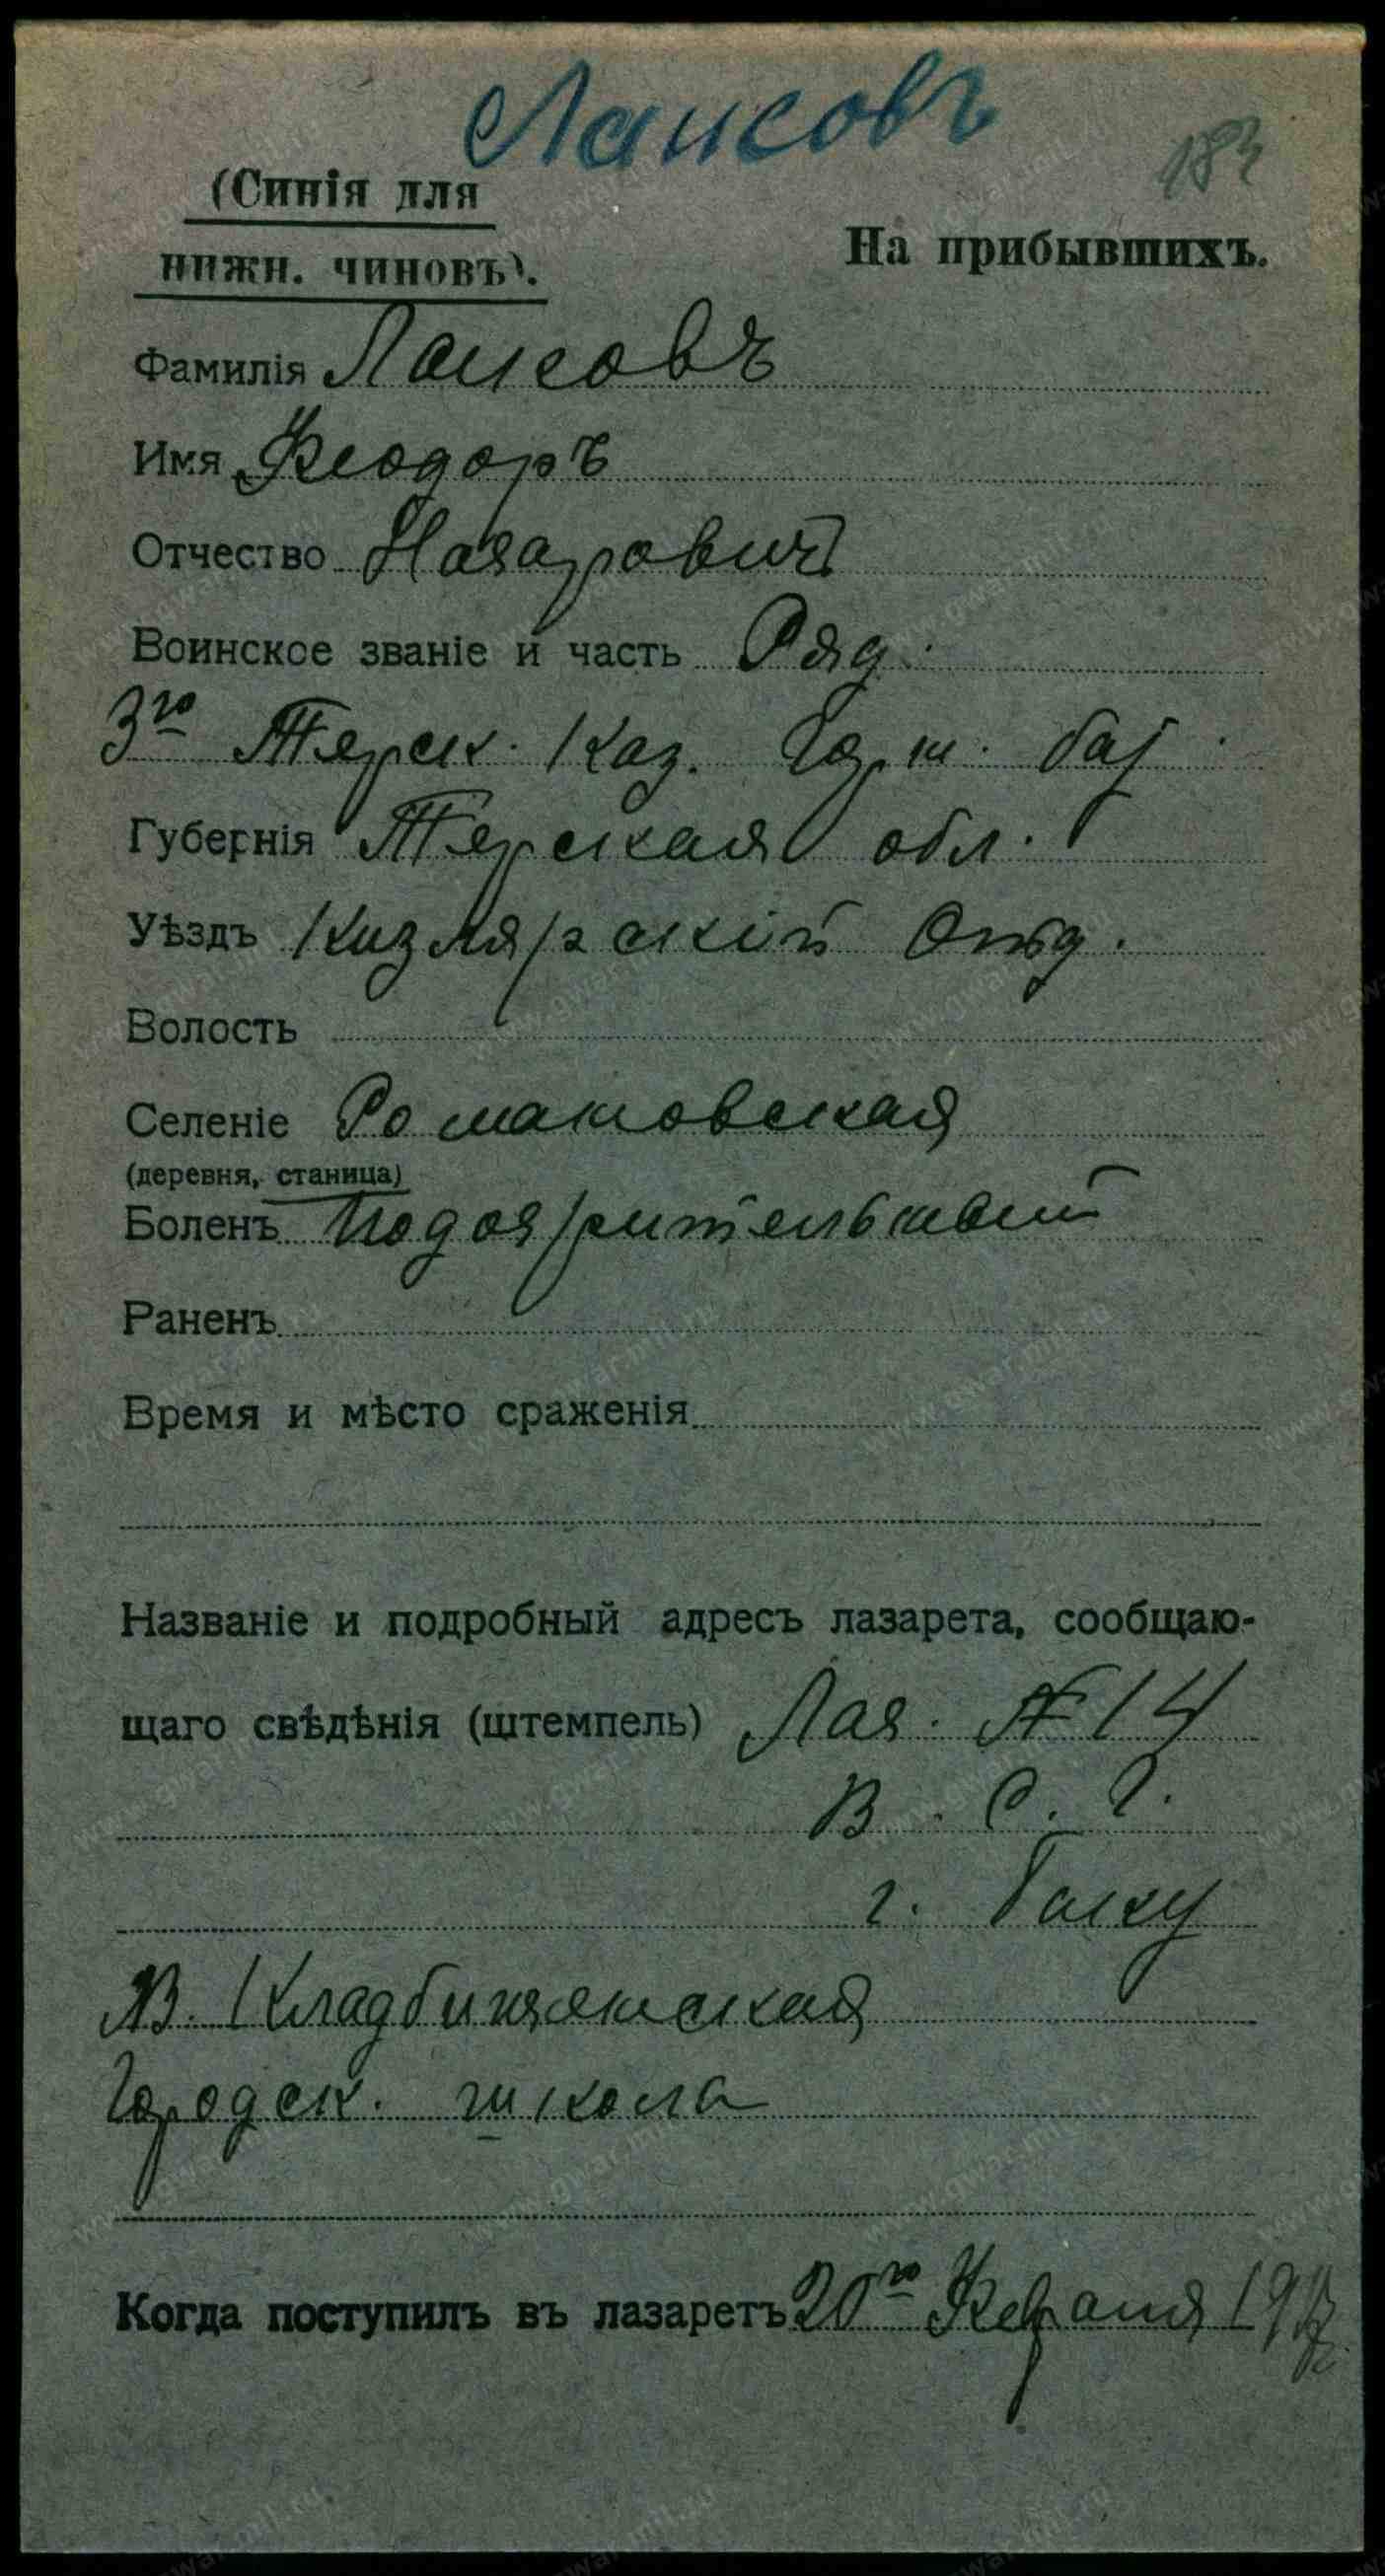 Лаисовъ
183
(Синія для
нижн. чиновъ).
На прибывшихъ.
Фамилія Лаисовъ
Имя Феодоръ
Отчество Назарович
Воинское званіе и часть Ряд.
3го Терск. Каз. бат.
Губернія Терская обл.
Уѣздъ Кизлярский Отд.
Волость
Селеніе Романовская
(деревня, станица)
Боленъ Подозрительный
Раненъ
Время и мѣсто сраженія
Названіе и подробный адресъ лазарета, сообщаю-
щаго свѣдѣнія (штемпель) Лаз. № 14
В. С. Г.
г. Баку
Кладбищенская
Городск. школа
Когда поступилъ въ лазаретъ 20го Февраля 1917